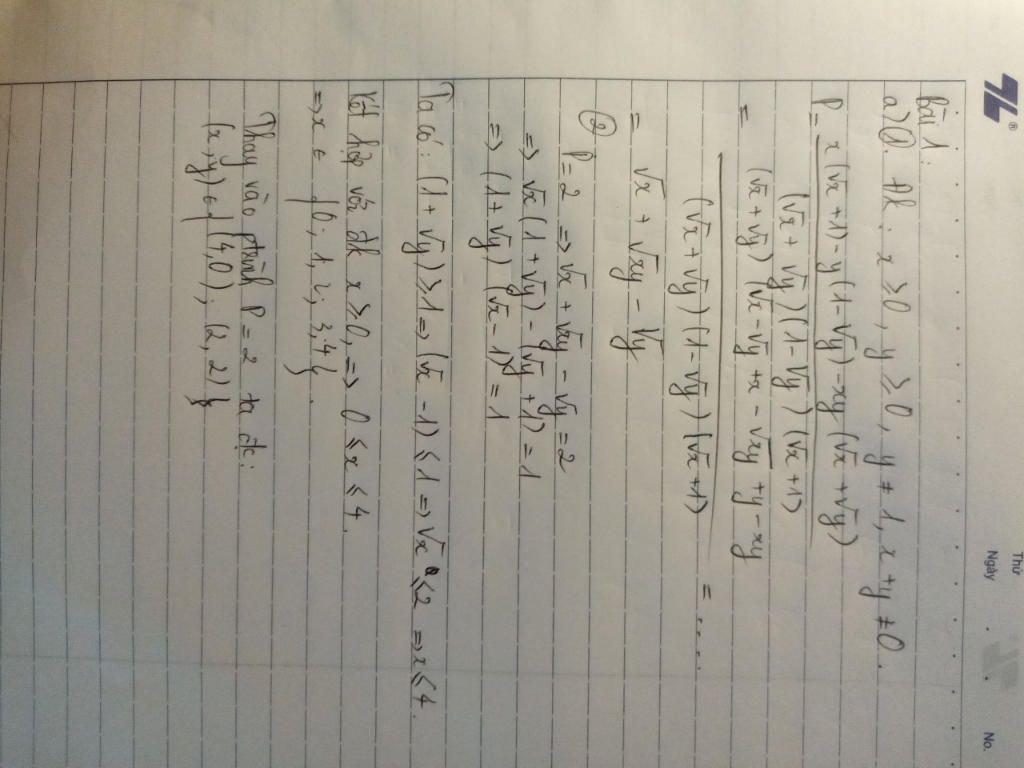 Thứ
Ngày
No.
Bài 1:
a) Đk: x ≥ 0, y ≥ 0, y ≠ 1, x + y ≠ 0.
P = x(√x + 1) - y(1 - √y) - xy(√x + √y) / (√x + √y)(1 - √y)(√x + 1)
= (√x + √y)(√x - √y + x - √xy + y - xy) / (√x + √y)(1 - √y)(√x + 1) = ....
= √x + √xy - √y
② P = 2 => √x + √xy - √y = 2
=> √x(1 + √y) - (√y + 1) = 1
=> (1 + √y)(√x - 1) = 1
Ta có: (1 + √y) ≥ 1 => (√x - 1) ≤ 1 => √x ≤ 2 => x ≤ 4.
Kết hợp với đk x ≥ 0, => 0 ≤ x ≤ 4.
=> x ∈ {0; 1; 2; 3; 4}.
Thay vào ptrình P = 2 ta đc:
(x, y) ∈ {(4,0); (2,2)}